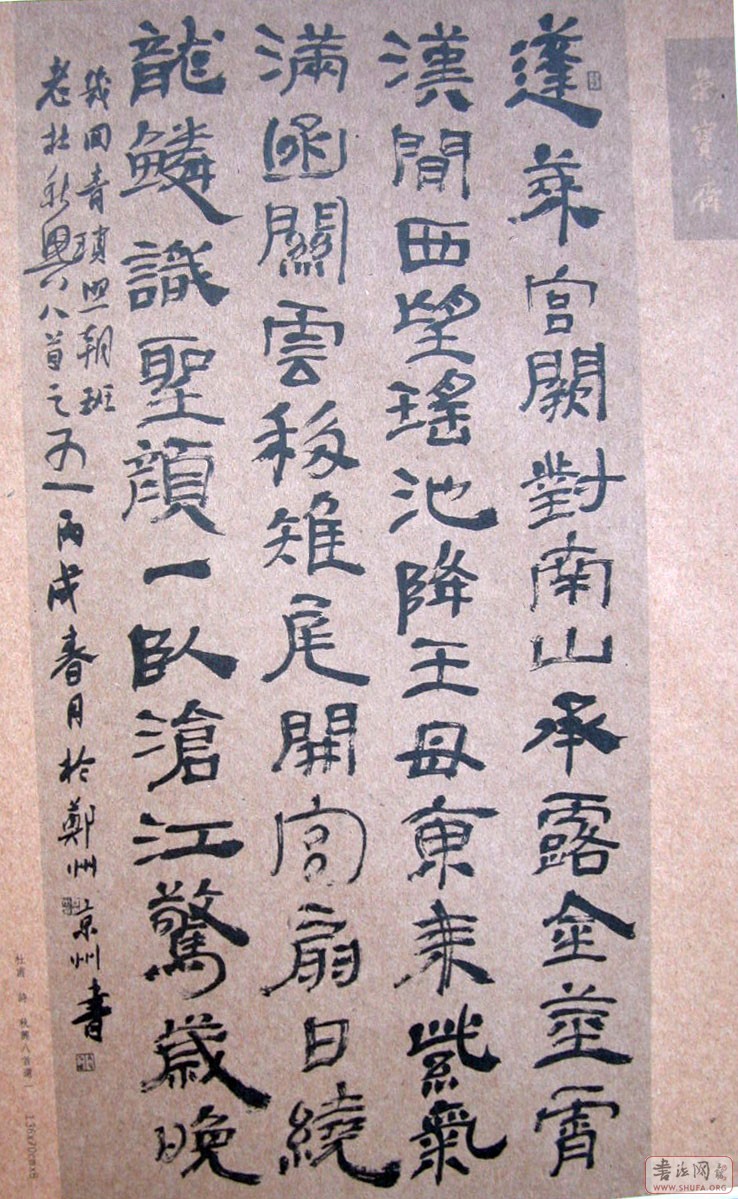 榮寶齋
蓬萊宮闕對南山承露金莖霄
漢間西望瑤池降王母東來紫氣
滿函關雲移雉尾開宮扇日繞
龍鱗識聖顏一臥滄江驚歲晚
幾回青瑣照朝班
老杜秋興八首之五一丙戌春月於鄭州京州書
杜甫 詩 秋興八首選一 136x70cmx8
書法网
WWW.SHUFA.ORG